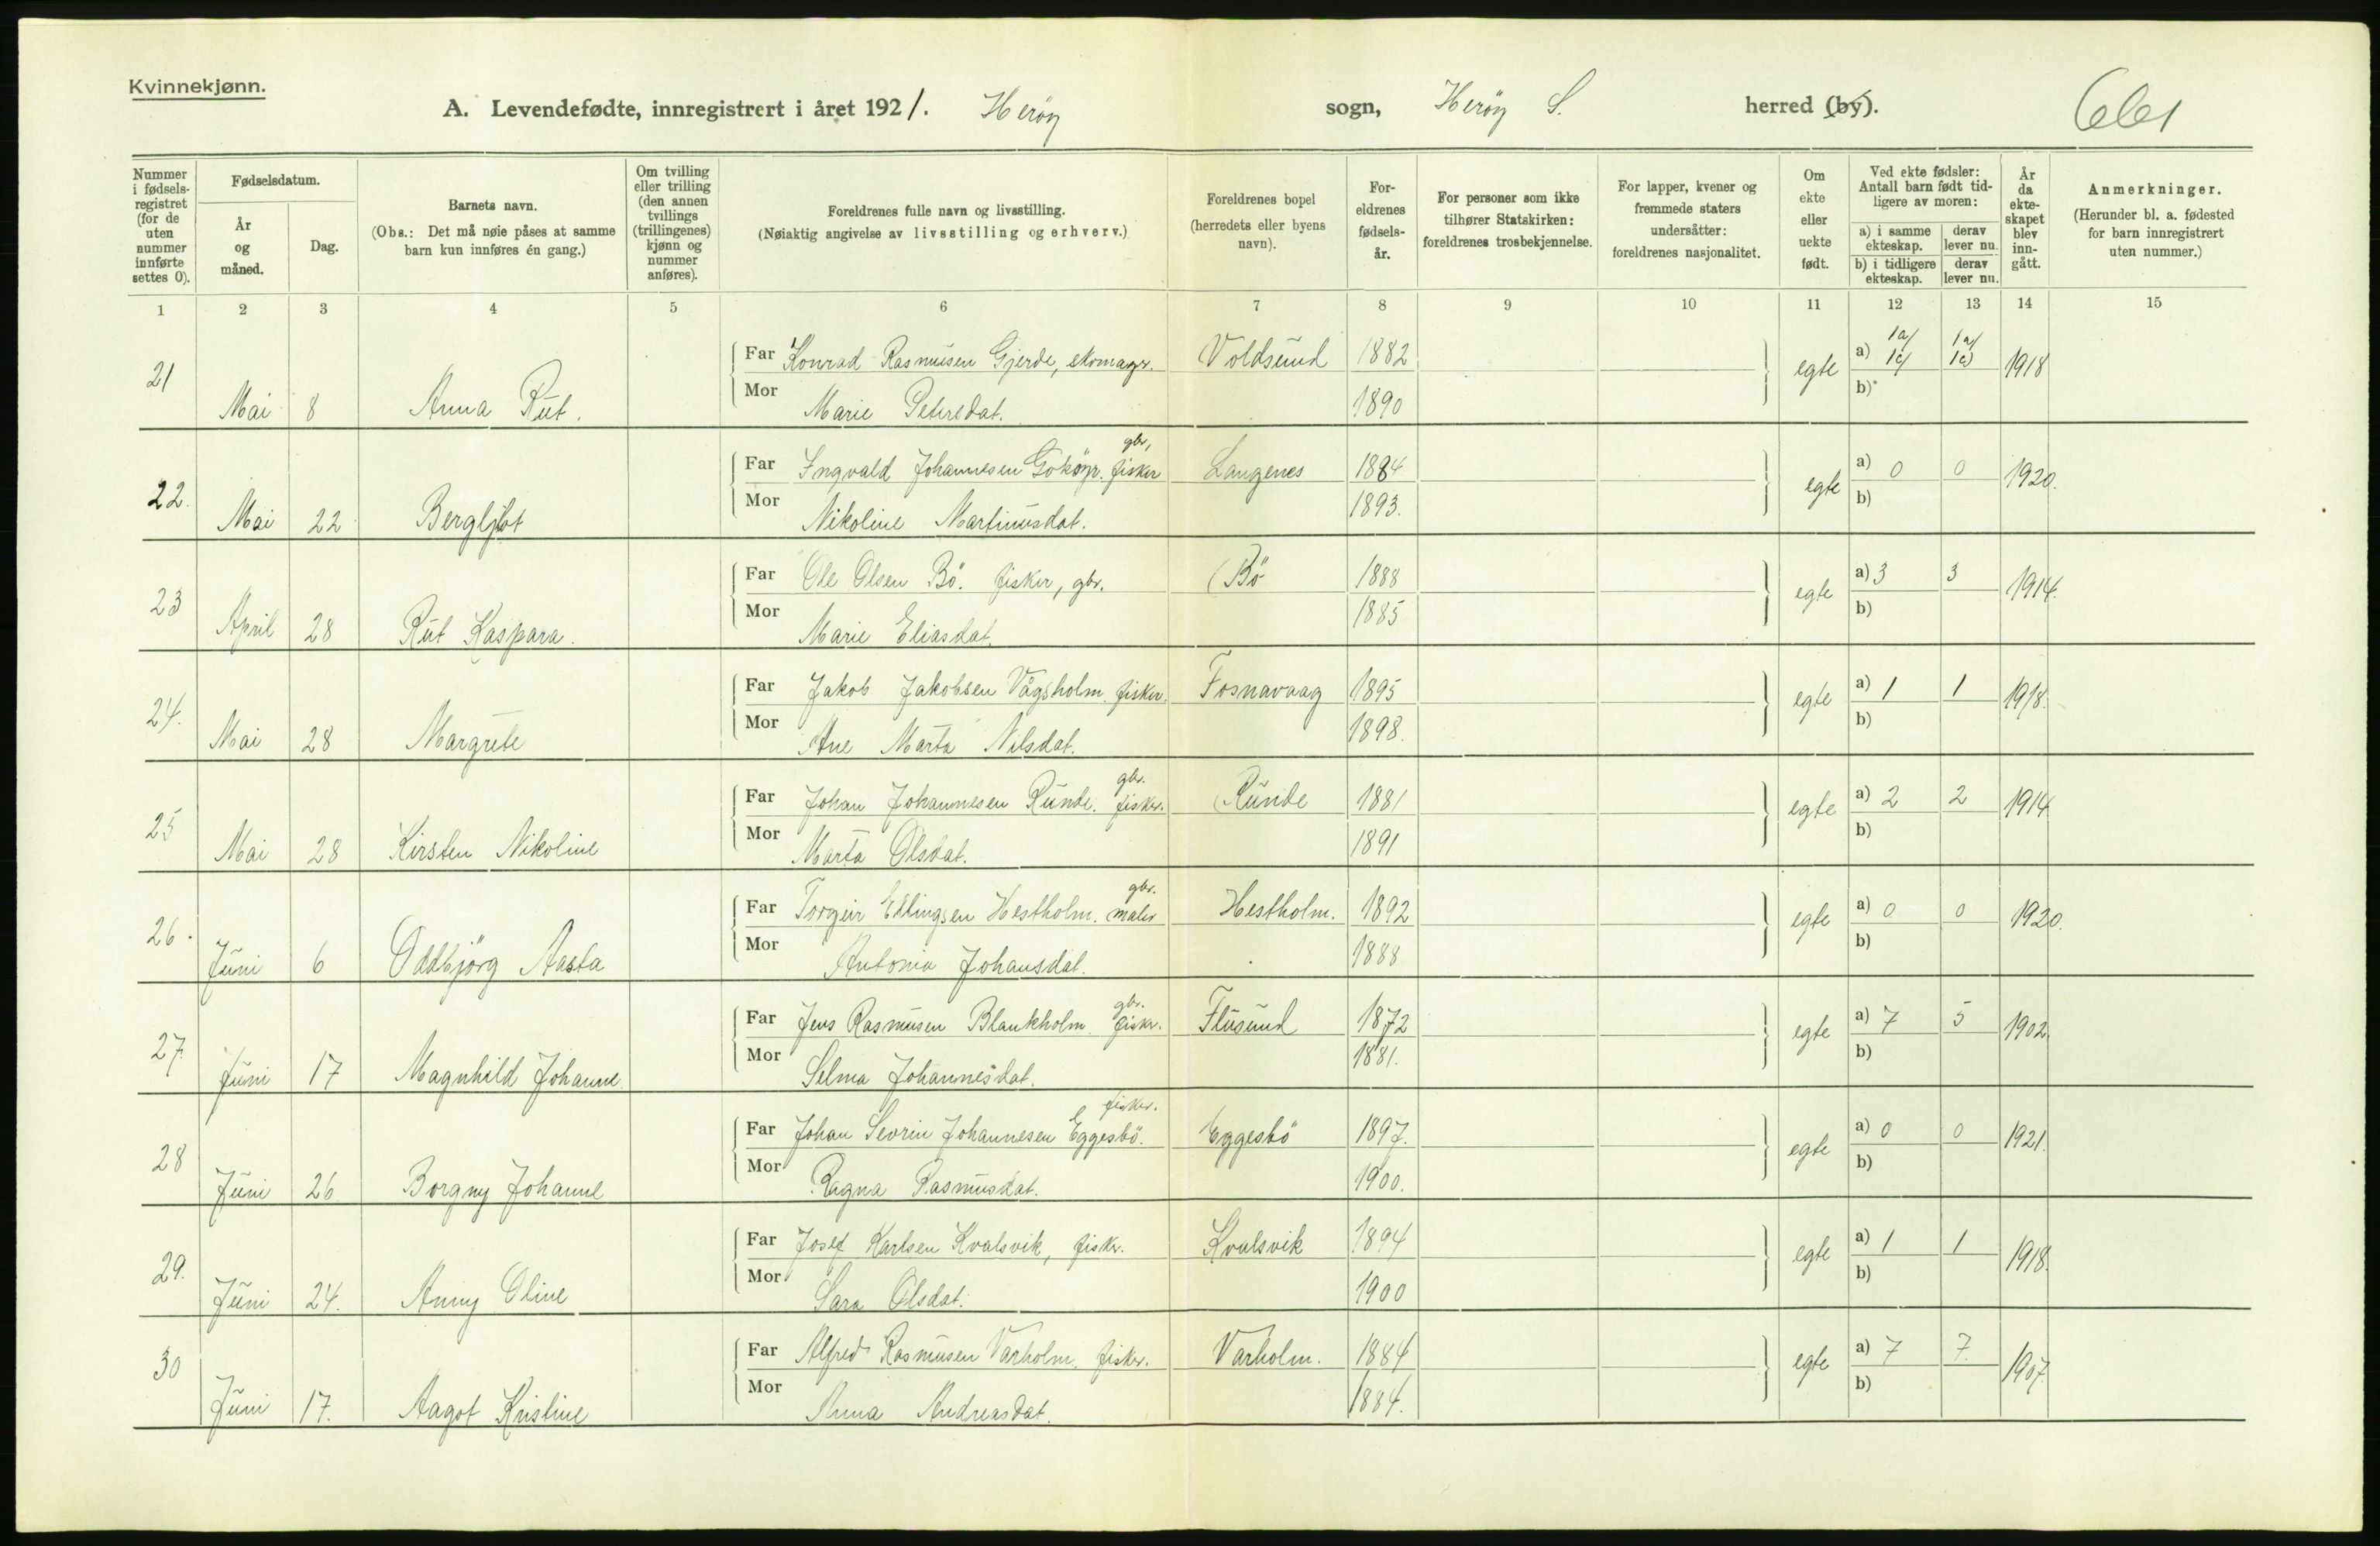 Kvinnekjønn.
A. Levendefødte, innregistrert i året 1921. Heröy sogn, Heröy S. herred (by).
Nummer i fødselsregistret (for de uten nummer innførte settes 0).
Fødselsdatum.
År og måned.
Dag.
Barnets navn.
(Obs.: Det må nøie påses at samme barn kun innføres én gang.)
Om tvilling eller trilling (den annen tvillings (trillingenes) kjønn og nummer anføres).
Foreldrenes fulle navn og livsstilling.
(Nøiaktig angivelse av livsstilling og erhverv.)
Foreldrenes bopel (herredets eller byens navn).
Foreldrenes fødselsår.
For personer som ikke tilhører Statskirken: foreldrenes trosbekjennelse.
For lapper, kvener og fremmede staters undersåtter: foreldrenes nasjonalitet.
Om ekte eller uekte født.
Ved ekte fødsler: Antall barn født tidligere av moren:
a) i samme ekteskap. derav lever nu.
b) i tidligere ekteskap. derav lever nu.
År da ekteskapet blev inngått.
Anmerkninger.
(Herunder bl. a. fødested for barn innregistrert uten nummer.)
1 2 3 4 5 6 7 8 9 10 11 12 13 14 15
21 Mai 8 Anna Rut.
Far Konrad Rasmusen Gjerde, skomagr. Voldsund 1882 egte a) 1a/ 1c/ 1a/ 1c) 1918
Mor Marie Petersdat. 1890 b)
22. Mai 22 Bergljot
gbr,
Far Ingvald Johannesen Goksöyr. fisker Langenes 1884 egte a) 0 0 1920.
Mor Nikoline Martinusdat. 1893. b)
23 April 28 Rut Kaspara.
Far Ole Olsen Bö. fisker, gbr. Bö 1888 egte a) 3 3 1914.
Mor Marie Eliasdat. 1885 b)
24. Mai 28 Margrete
Far Jakob Jakobsen Vågsholm. fisker. Fosnavaag 1895 egte a) 1 1 1918.
Mor Ane Marta Nilsdat. 1898. b)
25 Mai 28 Kirsten Nikoline
gbr.
Far Johan Johannesen Runde. fisker. Runde 1881 egte a) 2 2 1914
Mor Marta Olsdat. 1891 b)
26. Juni 6 Oddbjörg Aasta
gbr.
Far Torgeir Ellingsen Hestholm. maler Hestholm. 1892 egte a) 0 0 1920.
Mor Antonia Johansdat. 1888 b)
27. Juni 17 Magnhild Johanne
gbr.
Far Jens Rasmusen Blankholm. fisker. Flusund 1872 egte a) 7 5 1902.
Mor Selma Johannesdat. 1881. b)
28 Juni 26 Borgny Johanne
fisker.
Far Johan Sevrin Johannesen Eggesbö. Eggesbö 1897. egte a) 0 0 1921.
Mor Ragna Rasmusdat. 1900. b)
29. Juni 24. Anny Oline
Far Josef Karlsen Kvalsvik, fisker. Kvalsvik 1894 egte a) 1 1 1918.
Mor Sara Olsdat. 1900 b)
30 Juni 17. Aagot Kristine
Far Alfred Rasmusen Varholm. fisker. Varholm. 1884 egte a) 7 7. 1907.
Mor Anna Andreasdat. 1884. b)